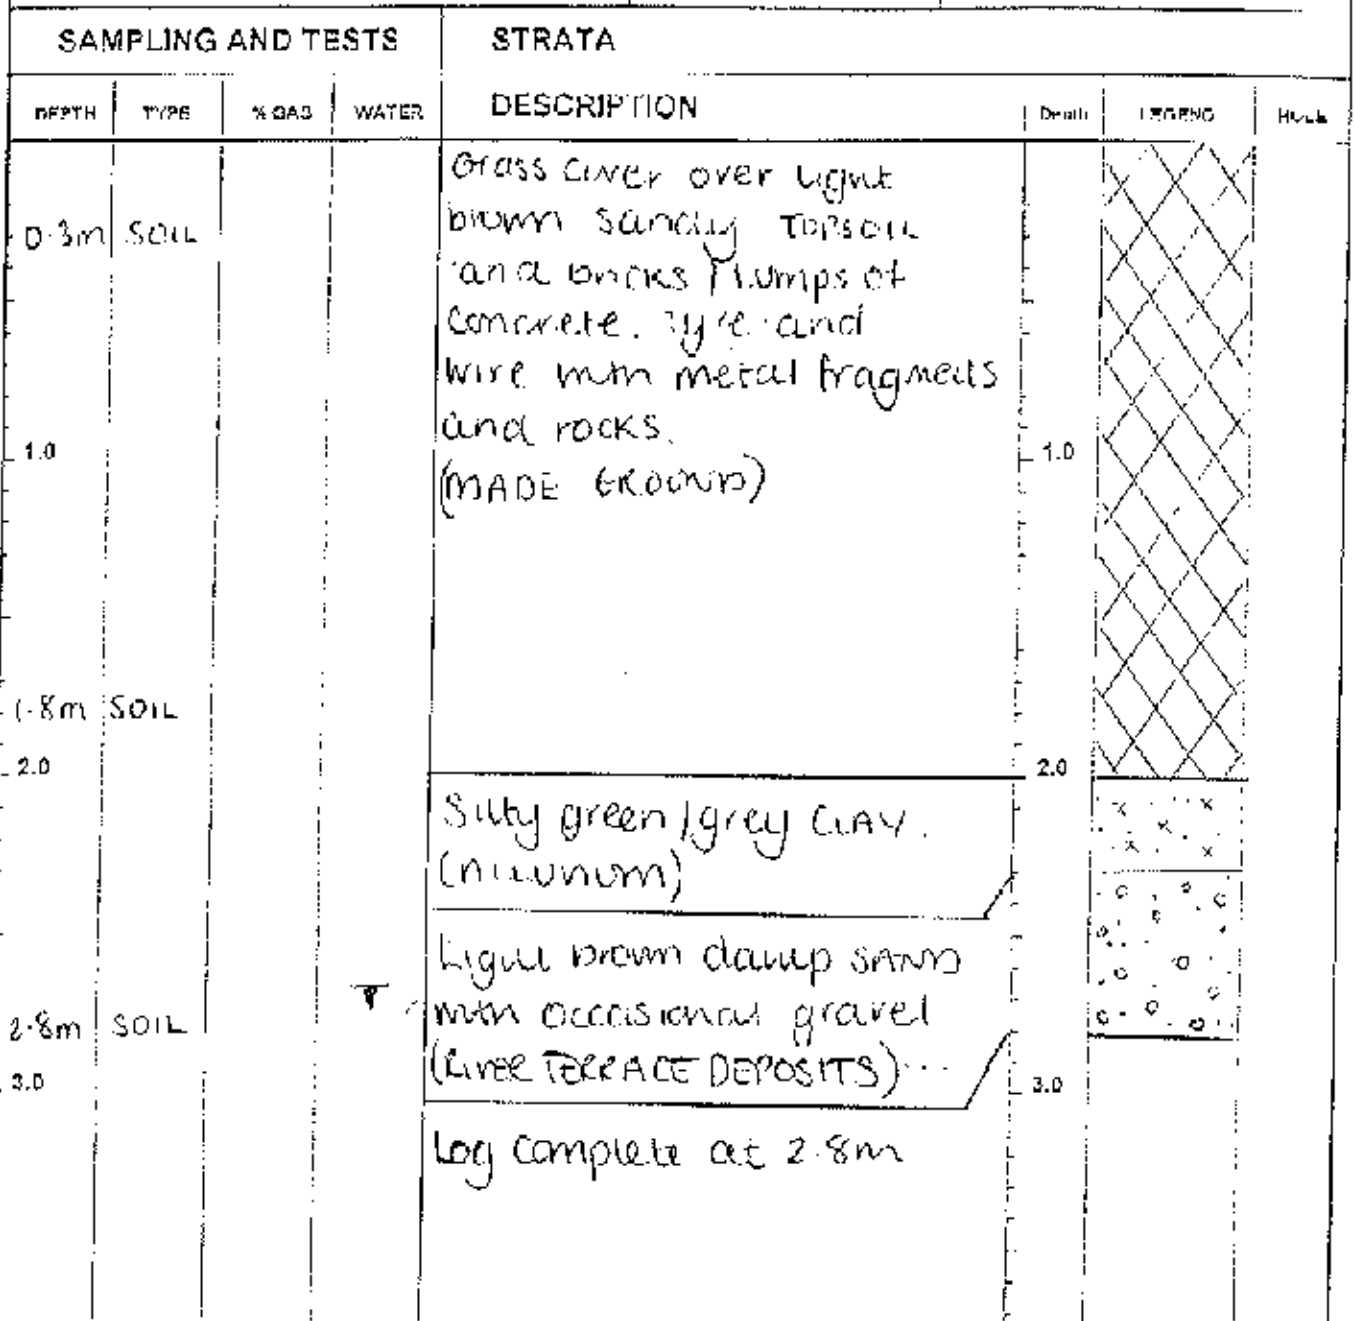 SAMPLING AND TESTS STRATA
DEPTH TYPE % GAS WATER DESCRIPTION Depth LEGEND HOLE
Grass cover over light
0.3m SOIL brown sandy TOPSOIL
and bricks, lumps of
concrete. Tyre and
wire with metal fragments
1.0 and rocks. 1.0
(MADE GROUND)
1.8m SOIL
2.0 2.0
Silty green/grey CLAY.
(ALLUVIUM)
Light brown damp SAND
2.8m SOIL with occasional gravel
3.0 (RIVER TERRACE DEPOSITS) 3.0
Log complete at 2.8m